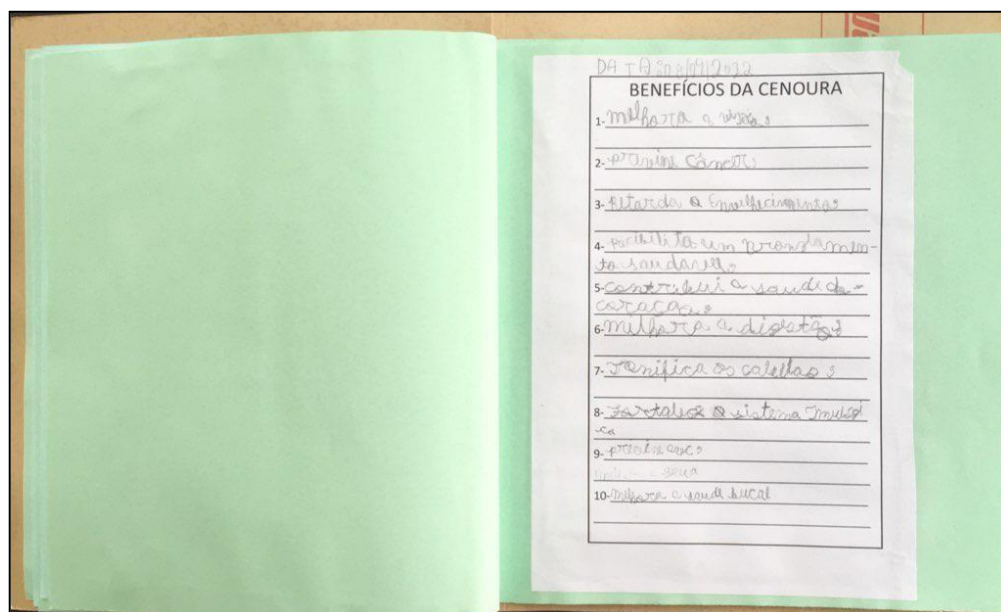 DATA: 08/04/2022
BENEFÍCIOS DA CENOURA
1- melhora a visão
2- previne Câncer
3- Retarda o Envelhecimento
4- um
to saudavel
5- contribui a saude do
coração
6- milhora a digestão
7- Tonifica os
8- Fortalece o sistema
9- previne avc
10- melhora a saude bucal